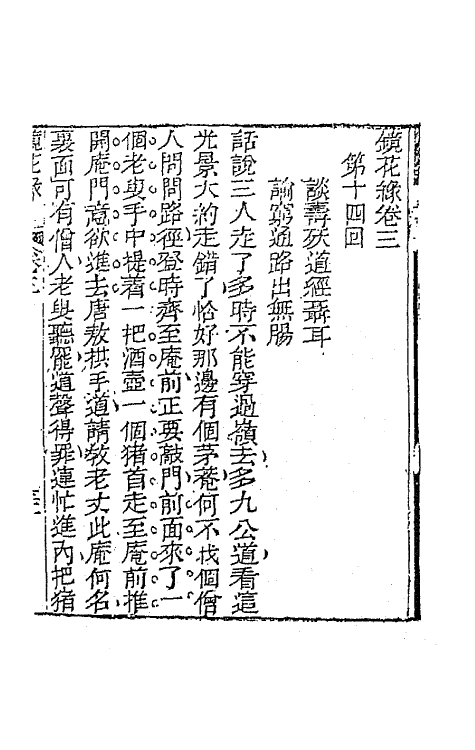 鏡花緣卷三
第十四回
談壽殀道經聶耳
論窮通路出無腸
話說三人走了多時不能穿過嶺去多九公道看這
光景大約走錯了恰好那邊有個茅菴何不找個僧
人問問路徑登時齊至庵前正要敲門前面來了一
個老叟手中提著一把酒壺一個猪首走至庵前推
開庵門意欲進去唐敖拱手道請敎老丈此庵何名
裏面可有僧人老叟聽罷道聲得罪連忙進內把猪